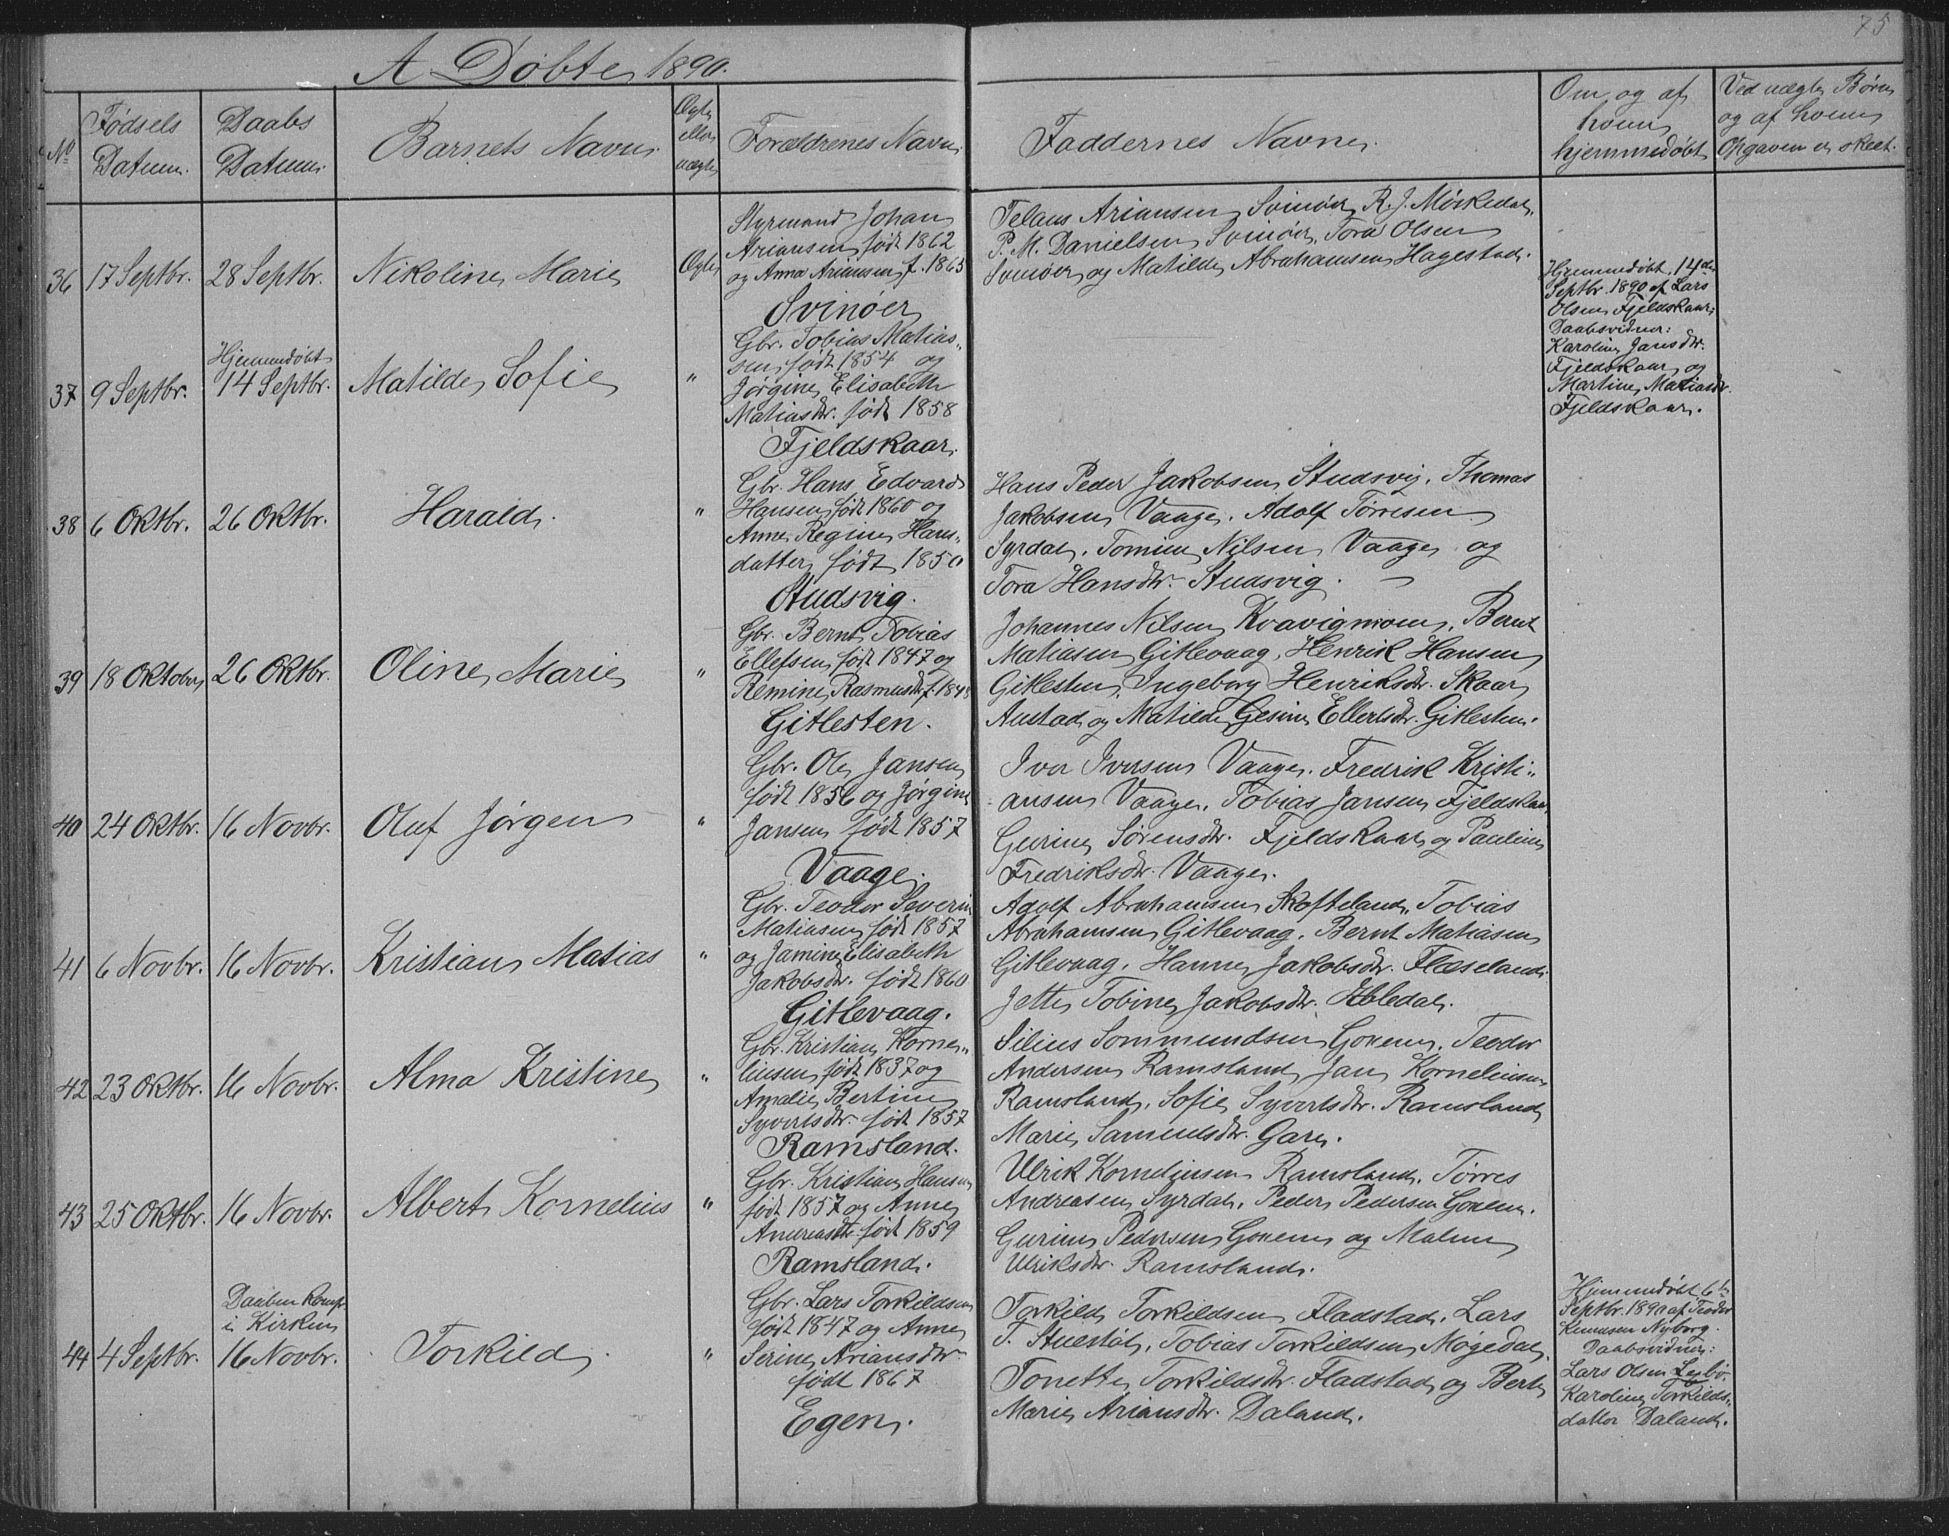 75
A Døbte 1890.
No
Fødsels Datum.
Daabs Datum.
Barnets Navn.
Ægte eller uægte
Forældrenes Navn.
Faddernes Navne.
Om og af hvem hjemmedøbt
Ved uægte Børn og af hvem Opgaven er skeet.
36
17 Septbr.
28 Septbr.
Nikoline Marie
Ægte
Styrmand Johan
Ariansen født 1862
og Anna Ariansen f. 1865
Svinøer
Telans Ariansen Svinøer, R. J. Mörkedal,
P. M. Danielsen Svinøer, Tora Olsen
Svinøer og Matilde Abrahamsen Hagestad.
37
9 Septbr.
Hjemmedøbt
14 Septbr.
Matilde Sofie
"
Gbr. Tobias Matias-
sen født 1854 og
Jørgine Elisabeth
Matiasdtr. født 1858
Fjeldskaar.
Hjemmedøbt 14de
Septbr. 1890 af Lars
Olsen Fjeldskaar;
Daabsvidner:
Karoline Jansdtr.
Fjeldskaar og
Martine Matiasdtr.
Fjeldskaar.
38
6 Oktbr.
26 Oktbr.
Harald.
"
Gbr. Hans Edvard
Hansen født 1860 og
Anne Regine Hans-
datter født 1850
Studsvig.
Hans Peder Jakobsen Studsvig, Thomas
Jakobsen Vaage, Adolf Tørresen
Syrdal, Tomine Nilsen Vaage og
Tora Hansdtr. Studsvig.
39
18 Oktober
26 Oktbr.
Oline Marie
"
Gbr. Bernt Tobias
Ellefsen født 1847 og
Remine Rasmusdtr f. 1848
Gitlesten.
Johannes Nilsen Kvavigmoen, Bernt
Matiasen Gitlevaag, Henrik Hansen
Gitlesten, Ingeborg Henriksdtr. Skaar
Austad og Matilde Gesine Ellertsdtr. Gitlesten.
40
24 Oktbr.
16 Novbr.
Oluf Jørgen
"
Gbr. Ole Jansen
født 1856 og Jørgine
Jansen født 1857
Vaage.
Iver Iversen Vaage, Fredrik Kristi-
ansen Vaage, Tobias Jansen Fjeldskaar
Gurine Sørensdtr. Fjeldskaar og Pauline
Fredriksdtr. Vaage.
41
6 Novbr.
16 Novbr.
Kristian Matias
"
Gbr. Teodor Severin
Matiasen født 1857
og Jamine Elisabeth
Jakobsdtr. født 1860
Gitlevaag.
Adolf Abrahamsen Skofteland, Tobias
Abrahamsen Gitlevaag, Bernt Matiasen
Gitlevaag, Hanne Jakobsdtr. Flæseland.
Jette Tobine Jakobsdtr. Ebledal.
42
23 Oktbr.
16 Novbr.
Alma Kristine
"
Gbr. Kristian Korne-
liusen født 1837 og
Amalie Bertine
Syvertsdtr. født 1857
Ramsland.
Silius Sommundsen Gonem, Teodor
Andersen Ramsland, Jan Korneliusen
Ramsland, Sofie Syvertsdtr. Ramsland
Marie Samuelsdtr. Gare.
43
25 Oktbr.
16 Novbr.
Albert Kornelius
"
Gbr. Kristian Hansen
født 1857 og Anne
Andreasdtr. født 1859
Ramsland.
Ulrik Korneliusen Ramsland, Tørres
Andreasen Syrdal, Peder Pedersen Gonem.
Gurine Pedersen Gonem og Malene
Ulriksdtr. Ramsland.
44
4 Septbr.
Daaben komf.
i Kirken
16 Novbr.
Torkild
"
Gbr. Lars Torkildsen
født 1847 og Anne
Serine Ariansdtr.
født 1867
Egen.
Torkild Torkildsen Fladstad, Lars
T. Stuestøl, Tobias Torkildsen Møgedal,
Tonette Torkildsdtr. Fladstad og Berte
Marie Ariansdtr. Daland.
Hjemmedøbt 6te
Septbr. 1890 af Teodor
Knudsen Nyborg.
Daabsvidner:
Lars Olsen
Karoline Torkilds-
datter Daland.